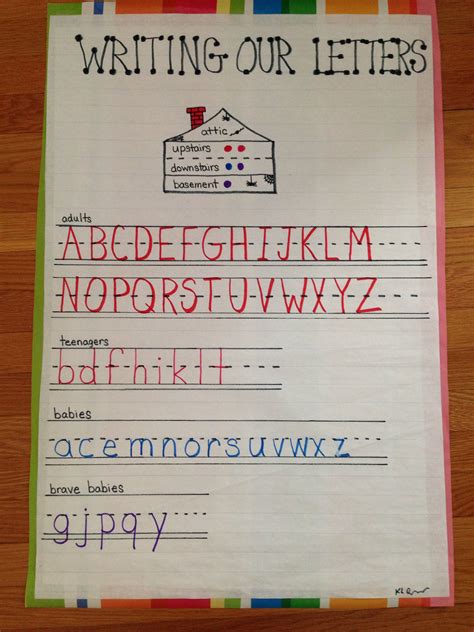 WRITING OUR LETTERS
attic
upstairs
downstairs
basement
adults
ABCDEFGHIJKLM
NOPQRSTUVWXYZ
teenagers
bdfhiklt
babies
acemnorsuvwxz
brave babies
gjpqy